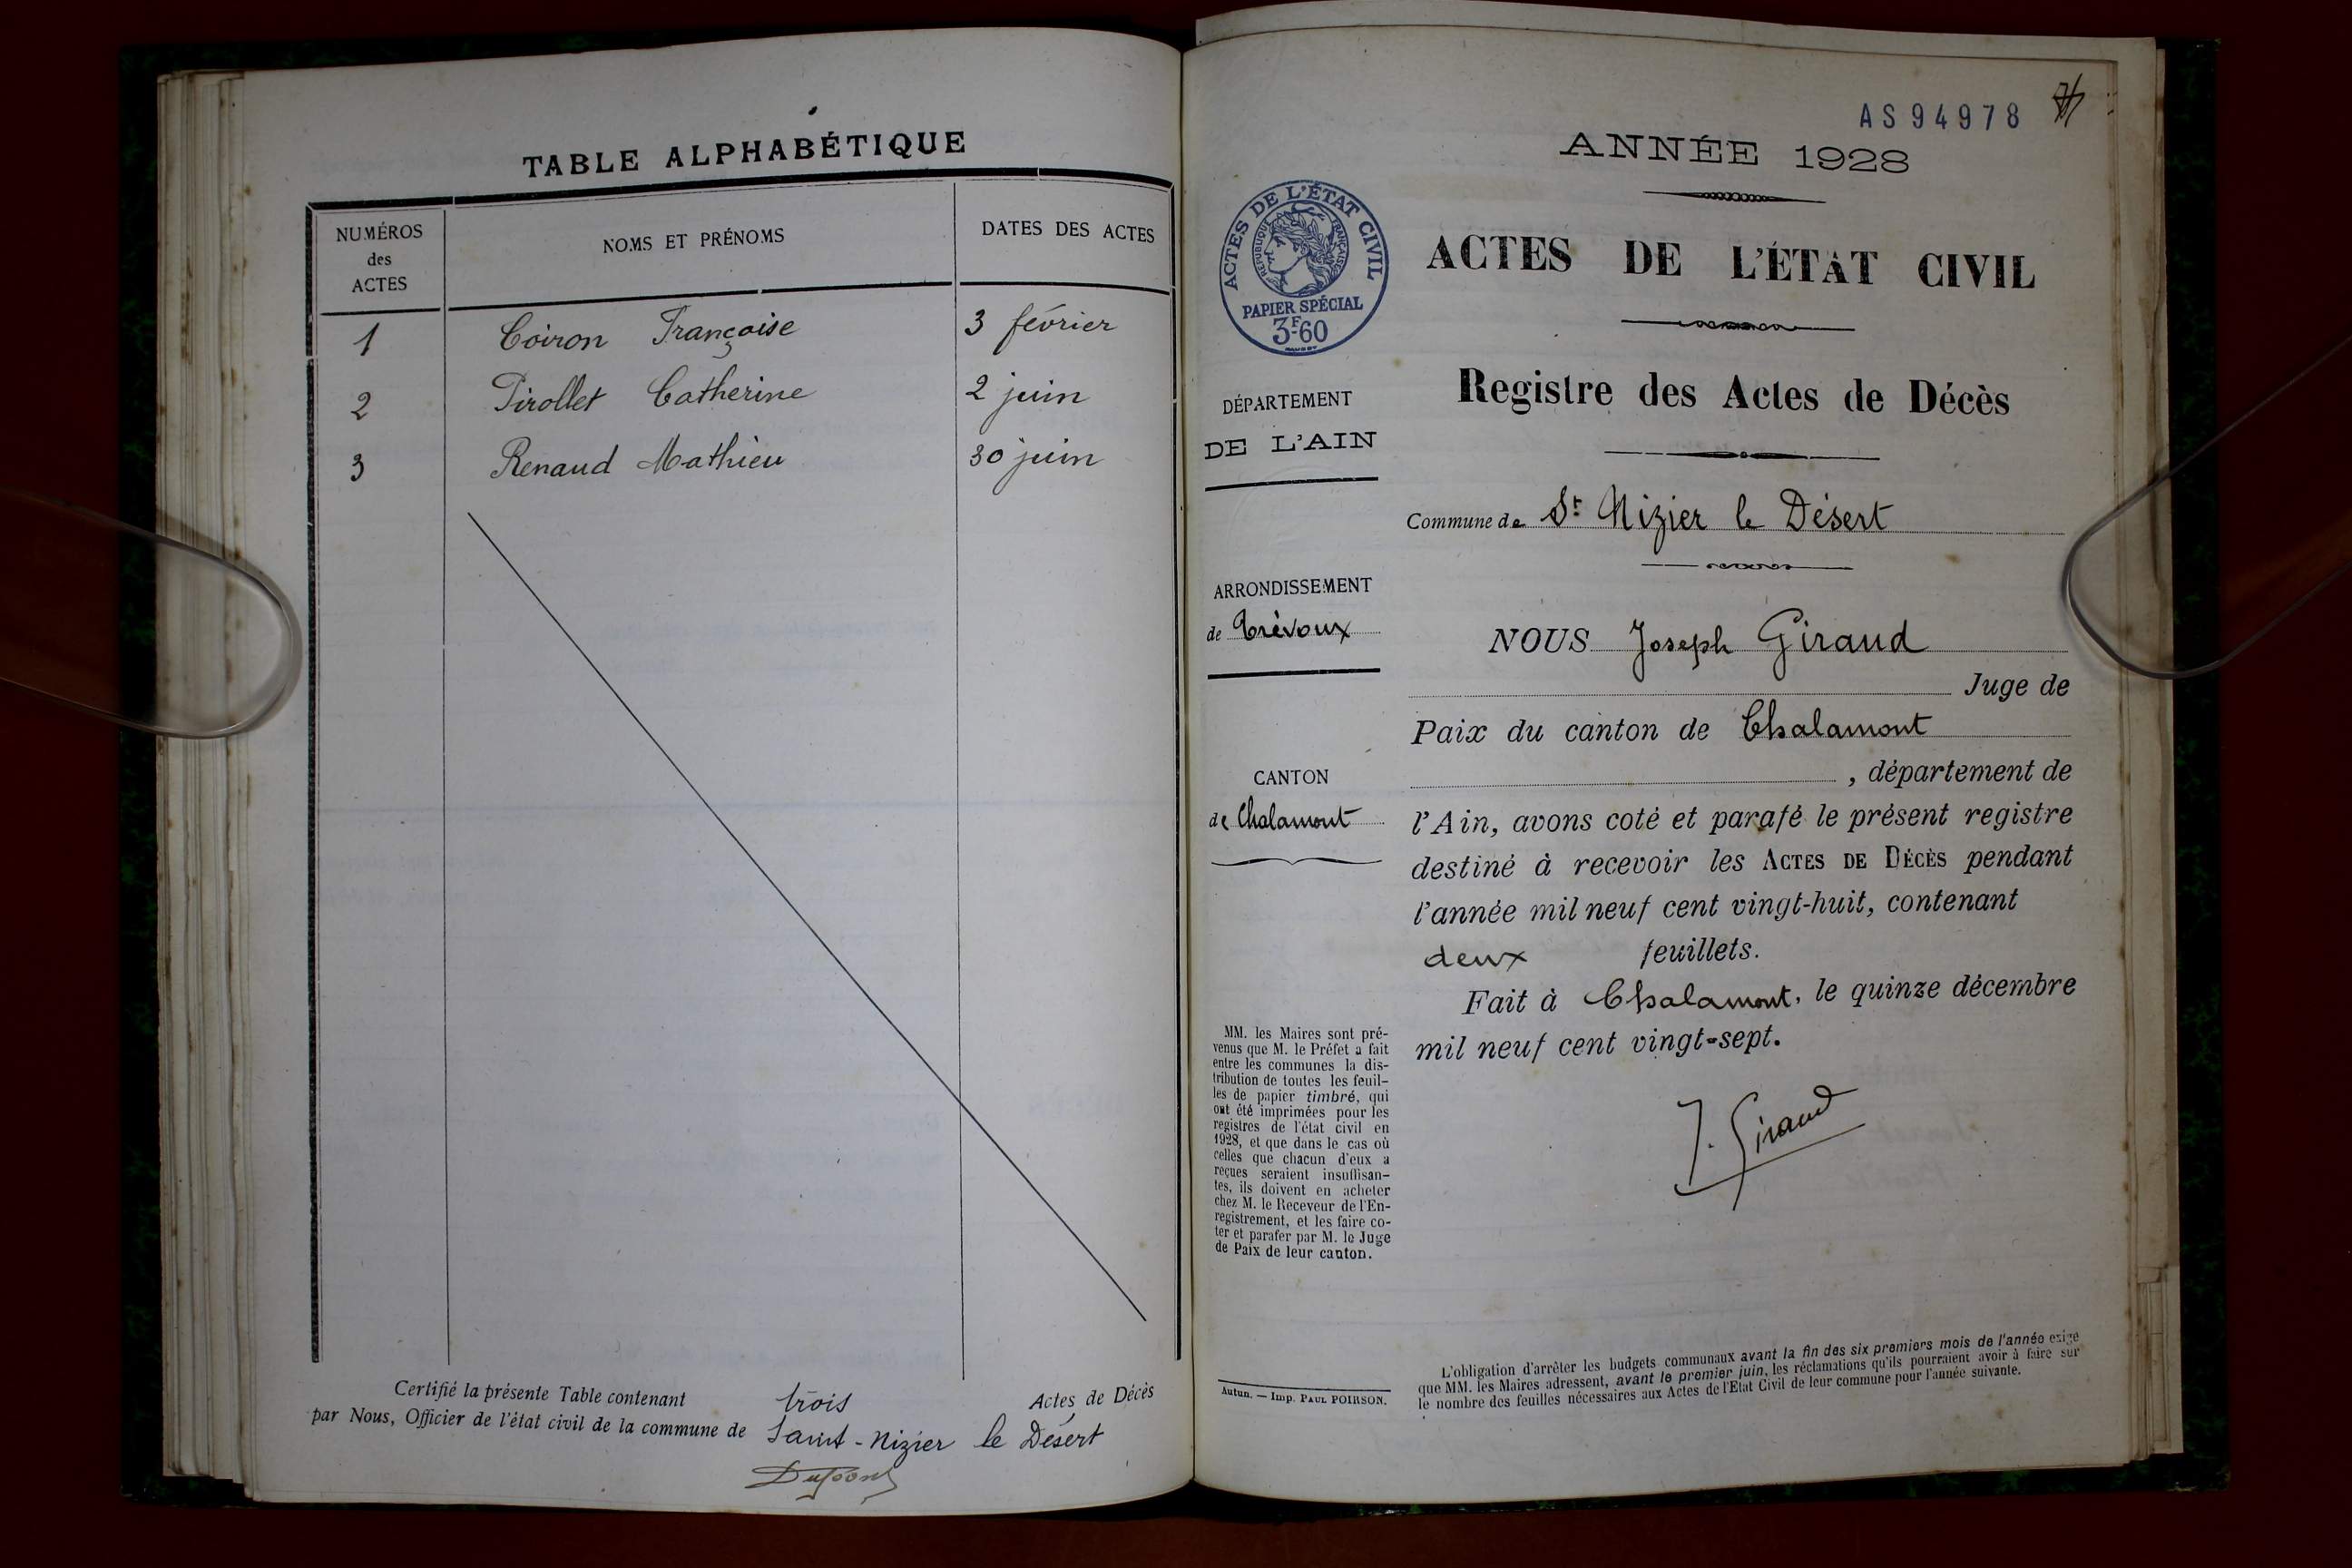 TABLE ALPHABÉTIQUE
NUMÉROS
des
ACTES
NOMS ET PRÉNOMS
DATES DES ACTES
1 Coiron Françoise 3 février
2 Pirollet Catherine 2 juin
3 Renaud Mathieu 30 juin
Certifié la présente Table contenant trois Actes de Décès
par Nous, Officier de l'état civil de la commune de Saint-Nizier le Désert
AS94978
ANNÉE 1928
ACTES DE L'ÉTAT CIVIL
RÉPUBLIQUE FRANÇAISE
PAPIER SPÉCIAL
3F60
ACTES DE L'ÉTAT CIVIL
Registre des Actes de Décès
DÉPARTEMENT
DE L'AIN
Commune de St Nizier le Désert
ARRONDISSEMENT
de Trévoux
NOUS Joseph Giraud
Juge de
Paix du canton de Chalamont
, département de
CANTON
de Chalamont
l'Ain, avons coté et parafé le présent registre
destiné à recevoir les ACTES DE DÉCÈS pendant
l'année mil neuf cent vingt-huit, contenant
deux feuillets.
Fait à Chalamont, le quinze décembre
mil neuf cent vingt-sept.
J. Giraud
MM. les Maires sont pré-
venus que M. le Préfet a fait
entre les communes la dis-
tribution de toutes les feuil-
les de papier timbré, qui
ont été imprimées pour les
registres de l'état civil en
1928, et que dans le cas où
celles que chacun d'eux a
reçues seraient insuffisan-
tes, ils doivent en acheter
chez M. le Receveur de l'En-
registrement, et les faire co-
ter et parafer par M. le Juge
de Paix de leur canton.
Autun. — Imp. PAUL POIRSON.
L'obligation d'arrêter les budgets communaux avant la fin des six premiers mois de l'année exige
que MM. les Maires adressent, avant le premier juin, les réclamations qu'ils pourraient avoir à faire sur
le nombre des feuilles nécessaires aux Actes de l'Etat Civil de leur commune pour l'année suivante.